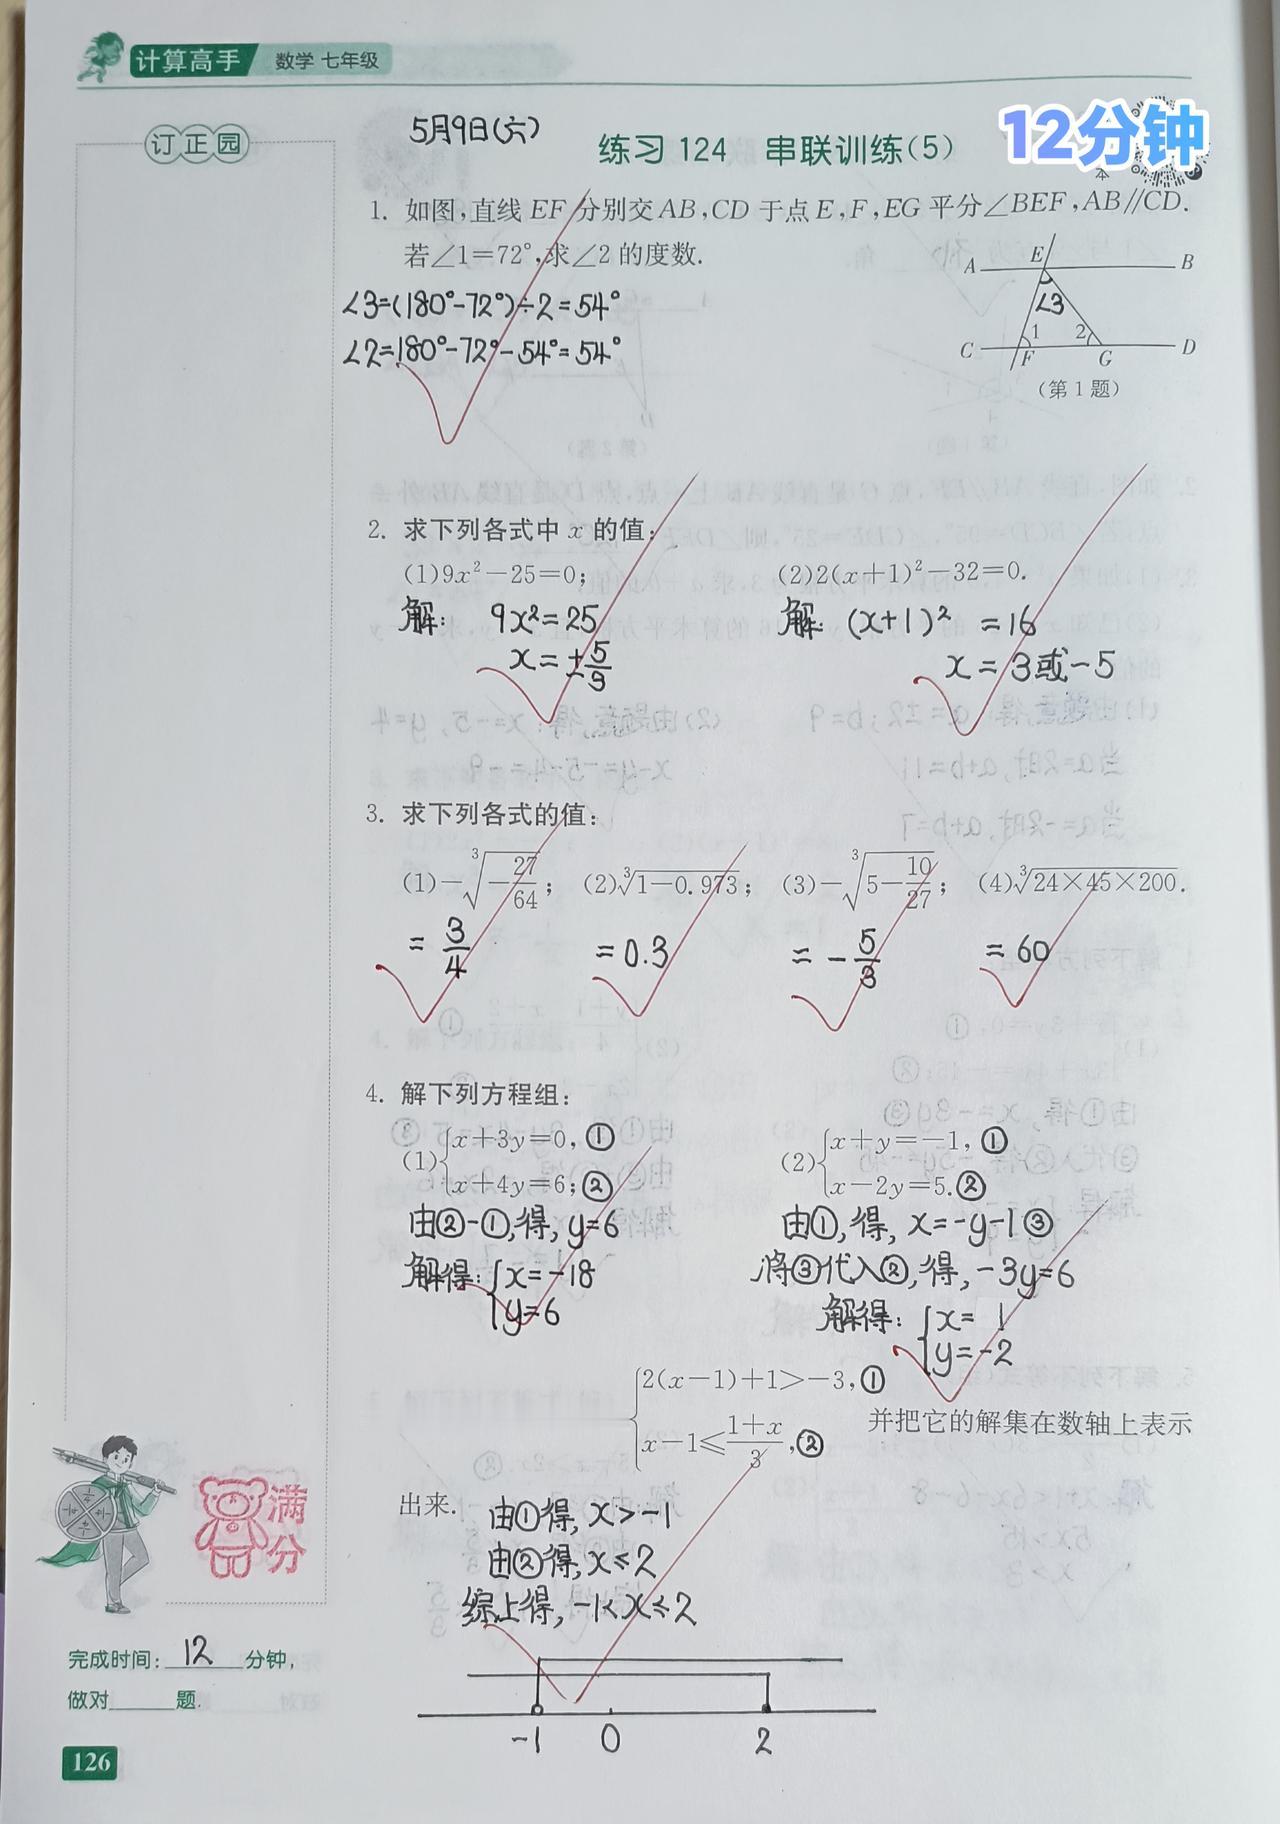 计算高手 数学 七年级
订正园
5月9日(六)
练习 124 串联训练(5)
12分钟
本
1. 如图,直线 EF 分别交 AB,CD 于点 E,F,EG 平分∠BEF,AB∥CD.
若∠1=72°,求∠2 的度数.
∠3=(180°-72°)÷2=54°
∠2=180°-72°-54°=54°
A E B
∠3
1 2
C F G D
(第 1 题)
2. 求下列各式中 x 的值:
(1)9x²-25=0; (2)2(x+1)²-32=0.
解: 9x²=25 解: (x+1)² =16
x=±5/3 x=3或-5
3. 求下列各式的值:
(1)-∛(-27/64); (2)∛(1-0.973); (3)-∛(5-10/27); (4)∛(24×45×200).
=3/4 =0.3 =-5/3 =60
4. 解下列方程组:
(1){x+3y=0,① (2){x+y=-1,①
x+4y=6;② x-2y=5.②
由②-①,得,y=6 由①,得,x=-y-1③
解得:{x=-18 将③代入②,得,-3y=6
y=6 解得:{x=1
y=-2
{2(x-1)+1>-3,①
x-1≤(1+x)/3,② 并把它的解集在数轴上表示
出来.
由①得,x>-1
由②得,x≤2
综上得,-1<x≤2
-1 0 2
满分
完成时间:12分钟,
做对______题.
126